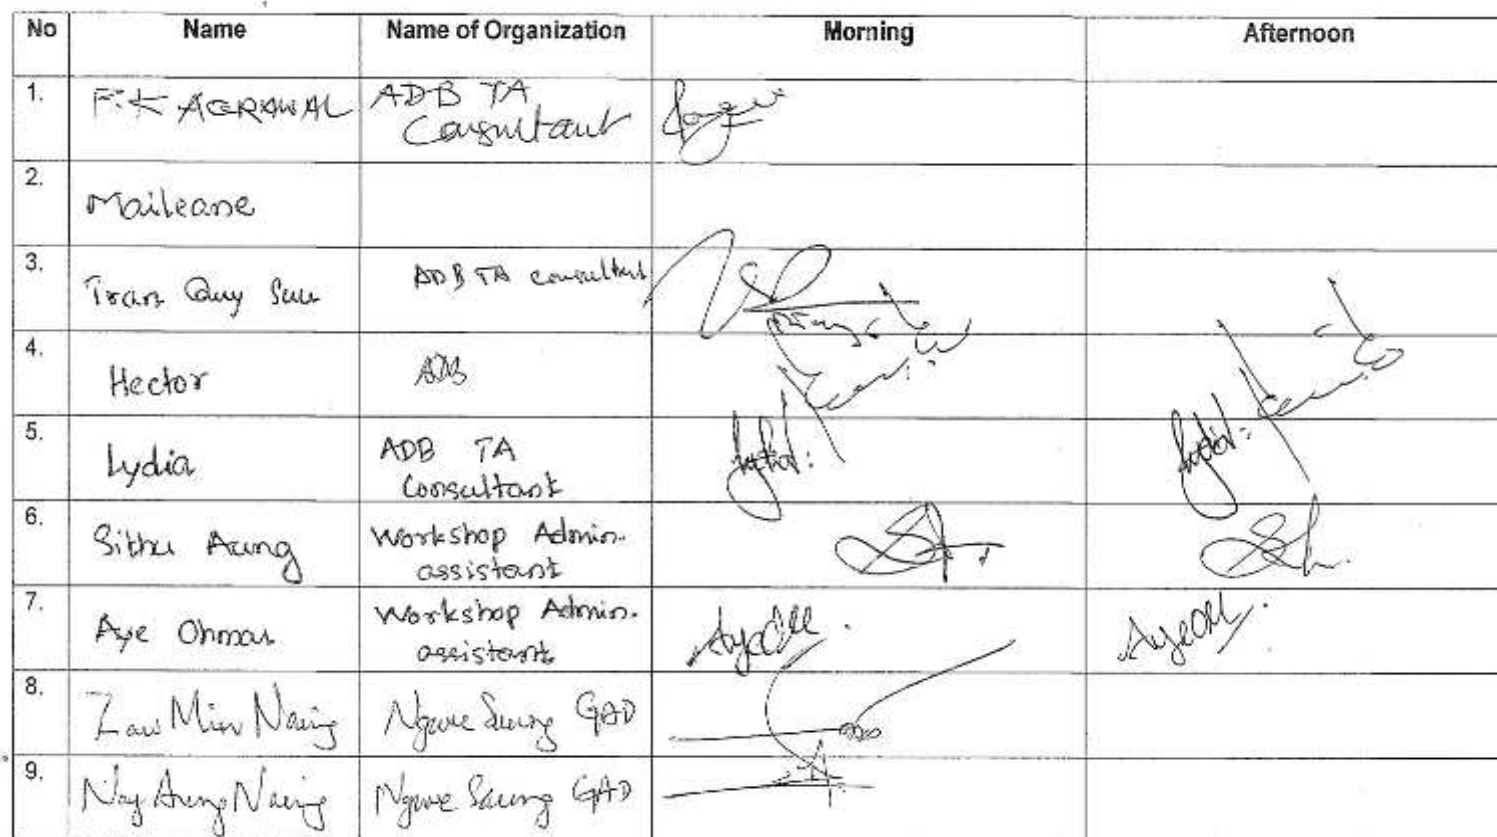 No Name Name of Organization Morning Afternoon
1. P.K AGRAWAL ADB TA
Consultant
2. Maileane
3. Tran Quy Suu ADB TA consultant
4. Hector ADB
5. Lydia ADB TA
Consultant
6. Sithu Aung Workshop Admin.
assistant
7. Aye Ohmar Workshop Admin.
assistant
8. Zaw Min Naing Ngwe Saung GAD
9. Nay Aung Naing Ngwe Saung GAD